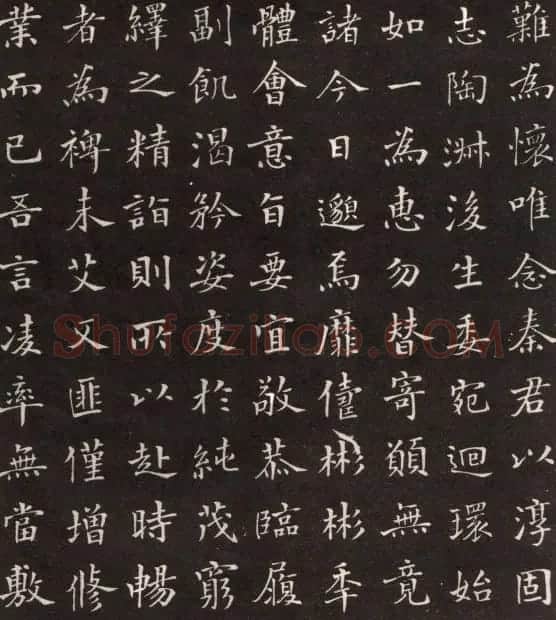 難為懷唯念秦君以淳固
志陶淑後生委宛迴環始
如一為惠勿替寄願無竟
諸今日邈焉靡儔彬彬季
體會意旨要宜敬恭臨履
副飢渴矜姿度於純茂窮
繹之精詣則所以赴時暢
者為裨未艾又匪僅增修
業而已吾言凌率無當敷